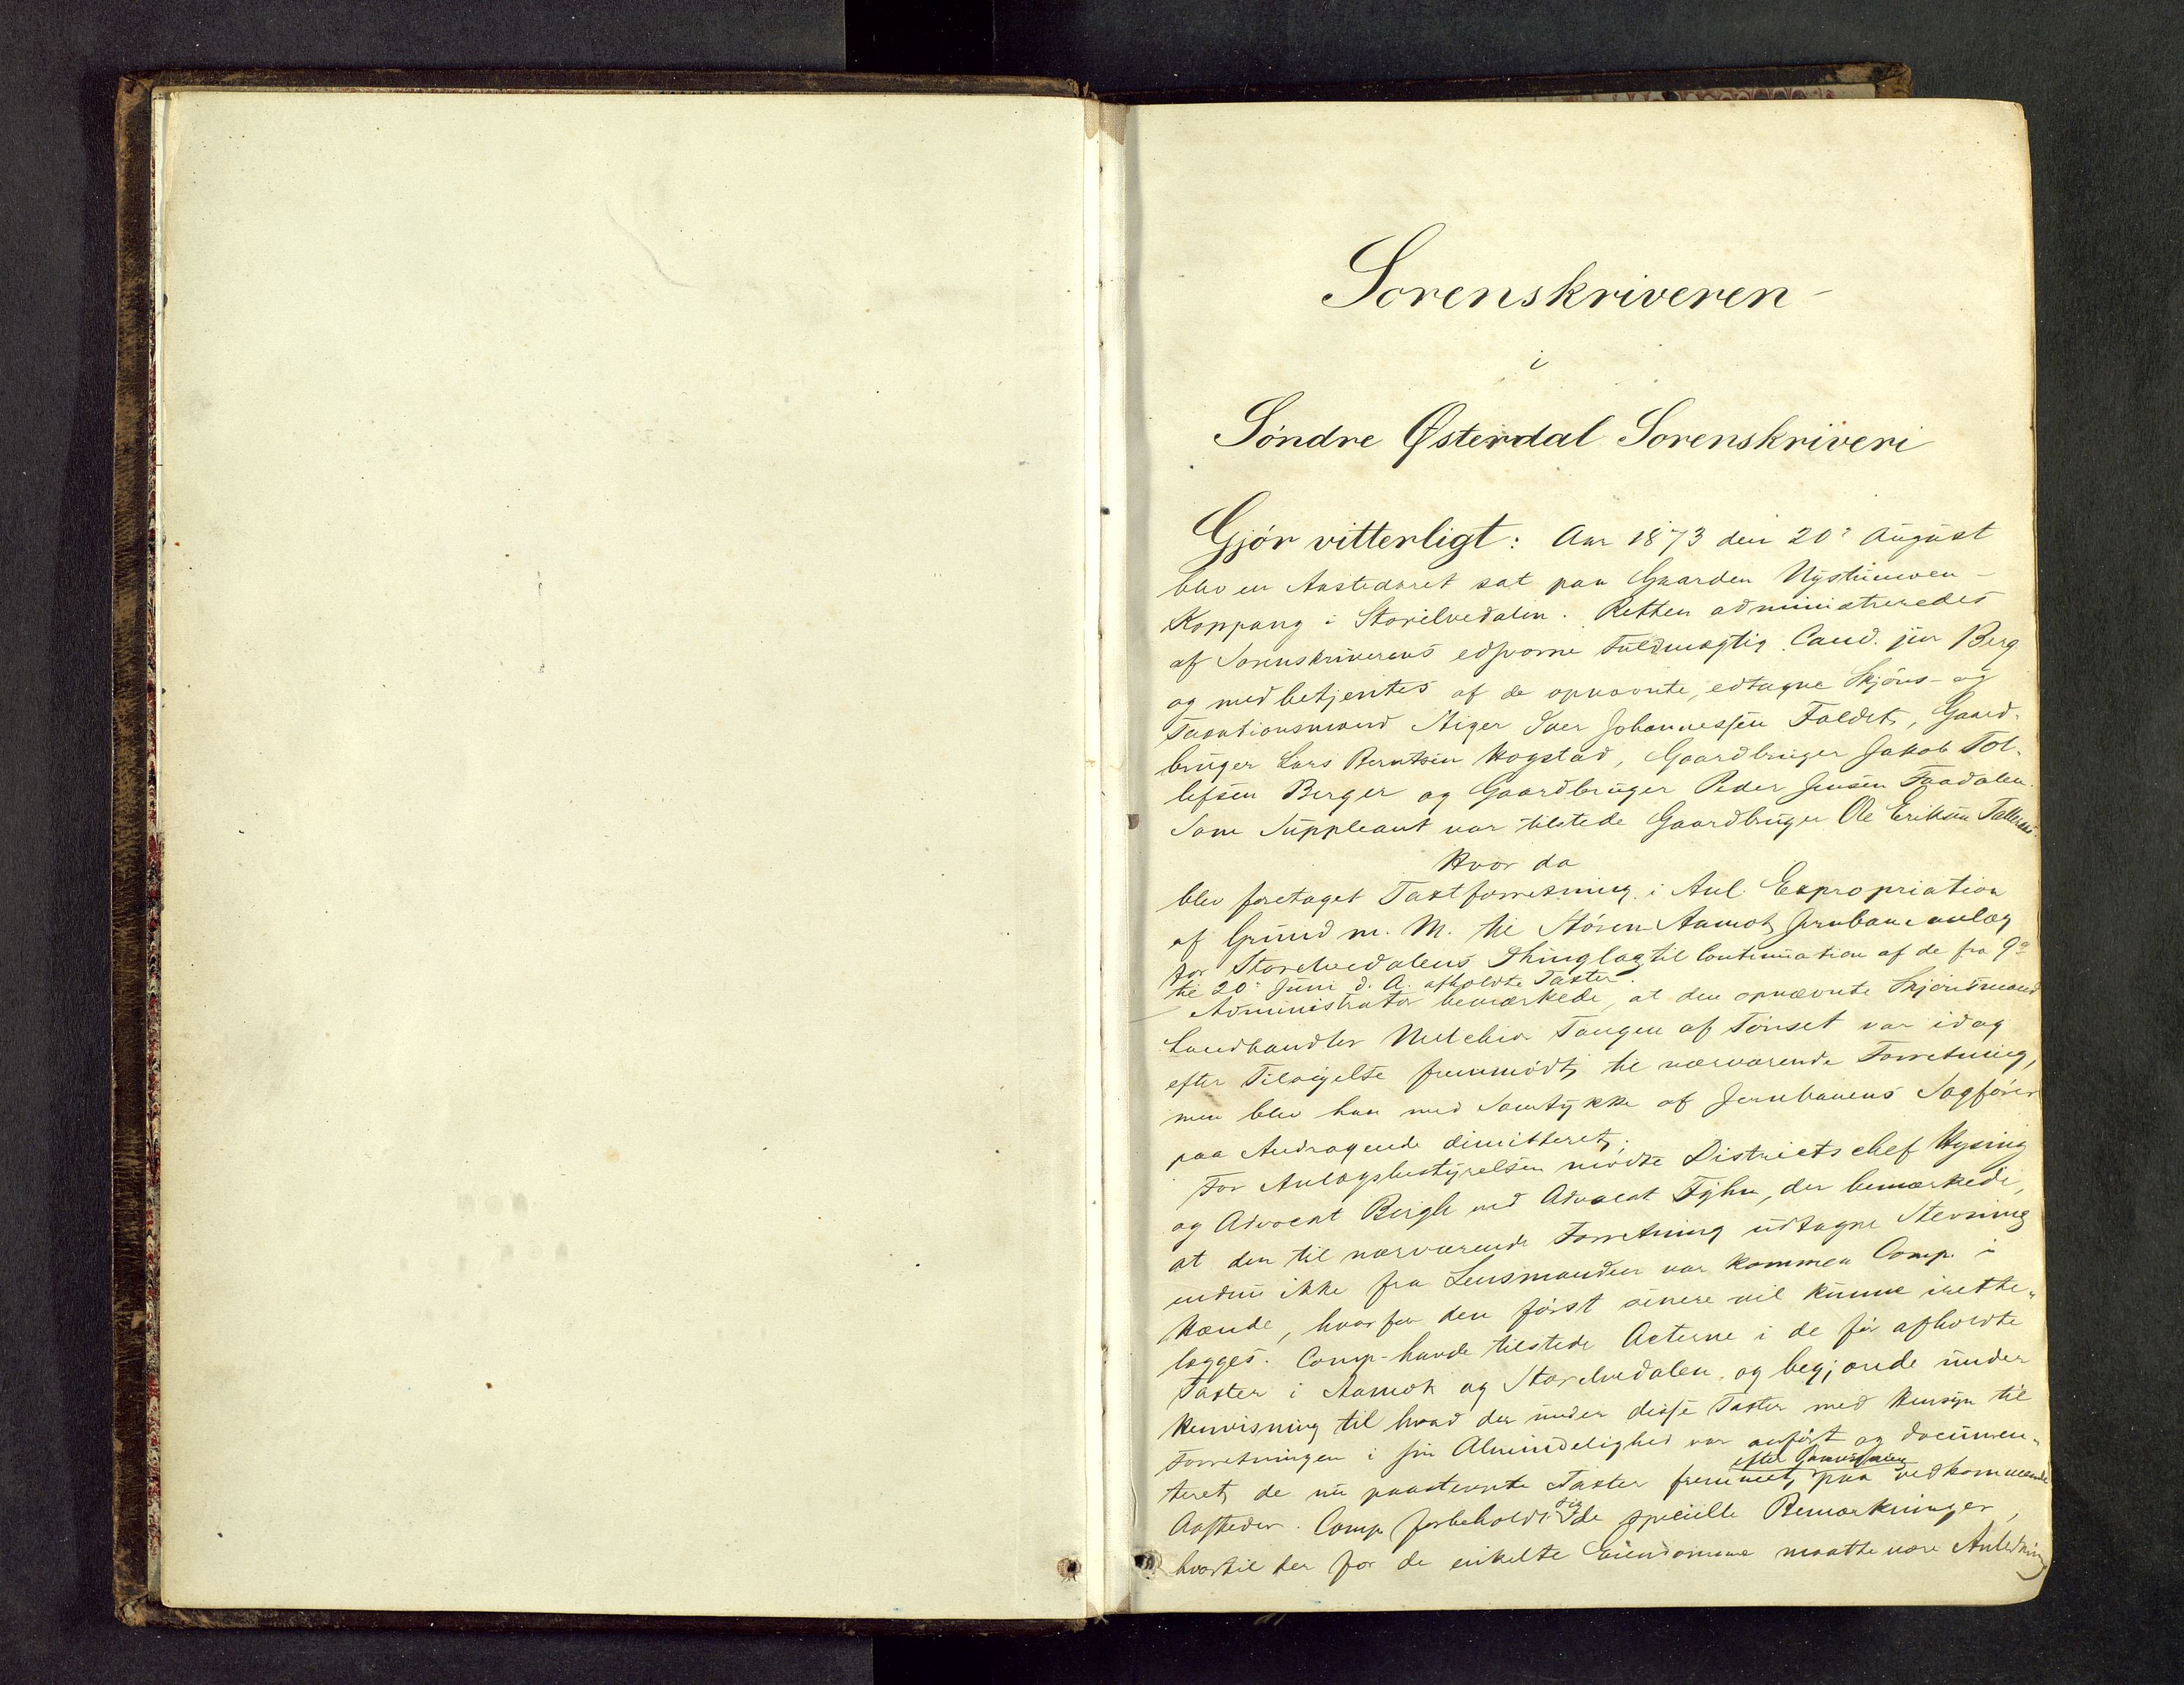 Sorenskriveren
i
Søndre Østerdal Sorenskriveri
Gjør vitterligt: Aar 1873 den 20de August
blev en Aastedsret sat paa Gaarden Nystuemoen
Koppang i Storelvedalen. Retten administreredes
af Sorenskriverens edsvorne Fuldmægtig Cand. jur Berg
og medbetjentes af de opnævnte, edtagne Skjøns- og
Taxtionsmænd Eiger Iver Johannessen Foldet, Gaard-
bruger Lars Berntsen Kogstad, Gaardbruger Jakob Tol-
lefsen Berger og Gaardbruger Peder Jensen Faadalen.
Som Suppleant var tilstede Gaardbruger Ole Eriksen
Hvor da
blev foretaget Taxtforretning i Anl. Expropriation
af Grund m. M. til Støren-Aamot Jernbaneanlæg
for Storelvedalens Thinglag til Continuation af de fra 9de
til 20de Juni d. A. afholdte Taxter.
Administrator bemærkede, at den opnævnte Skjønsmand
Landhandler Melchior Tangen af Tønset var idag
efter Tilsigelse fremmødt til nærværende Forretning,
men blev han med Samtykke af Jernbanens Sagfører
paa Andragende dimitteret.
For Anlægsbestyrelsen mødte Districtschef Hysing
og Advocat Bergh ved Advocat Fyhn, der bemærkede,
at den til nærværende Forretning udtagne Stevning
endnu ikke fra Lensmanden var kommen Comp. i
Hænde, hvorfor den først senere vil kunne irette-
lægges. Comp. havde tilstede Acterne i de før afholdte
Taxter i Aamot og Storelvedalen og begjærede under
Henvisning til hvad der under disse Taxter med Hensyn til
Forretningen i sin Almindelighed var anført og documen-
teret, de nu paastevnte Taxter fremmet efter paa vedkommende
Aasteder. Comp. forbeholdt sig de specielle Bemærkninger,
hvortil der for de enkelte Eiendomme maatte være Anledning